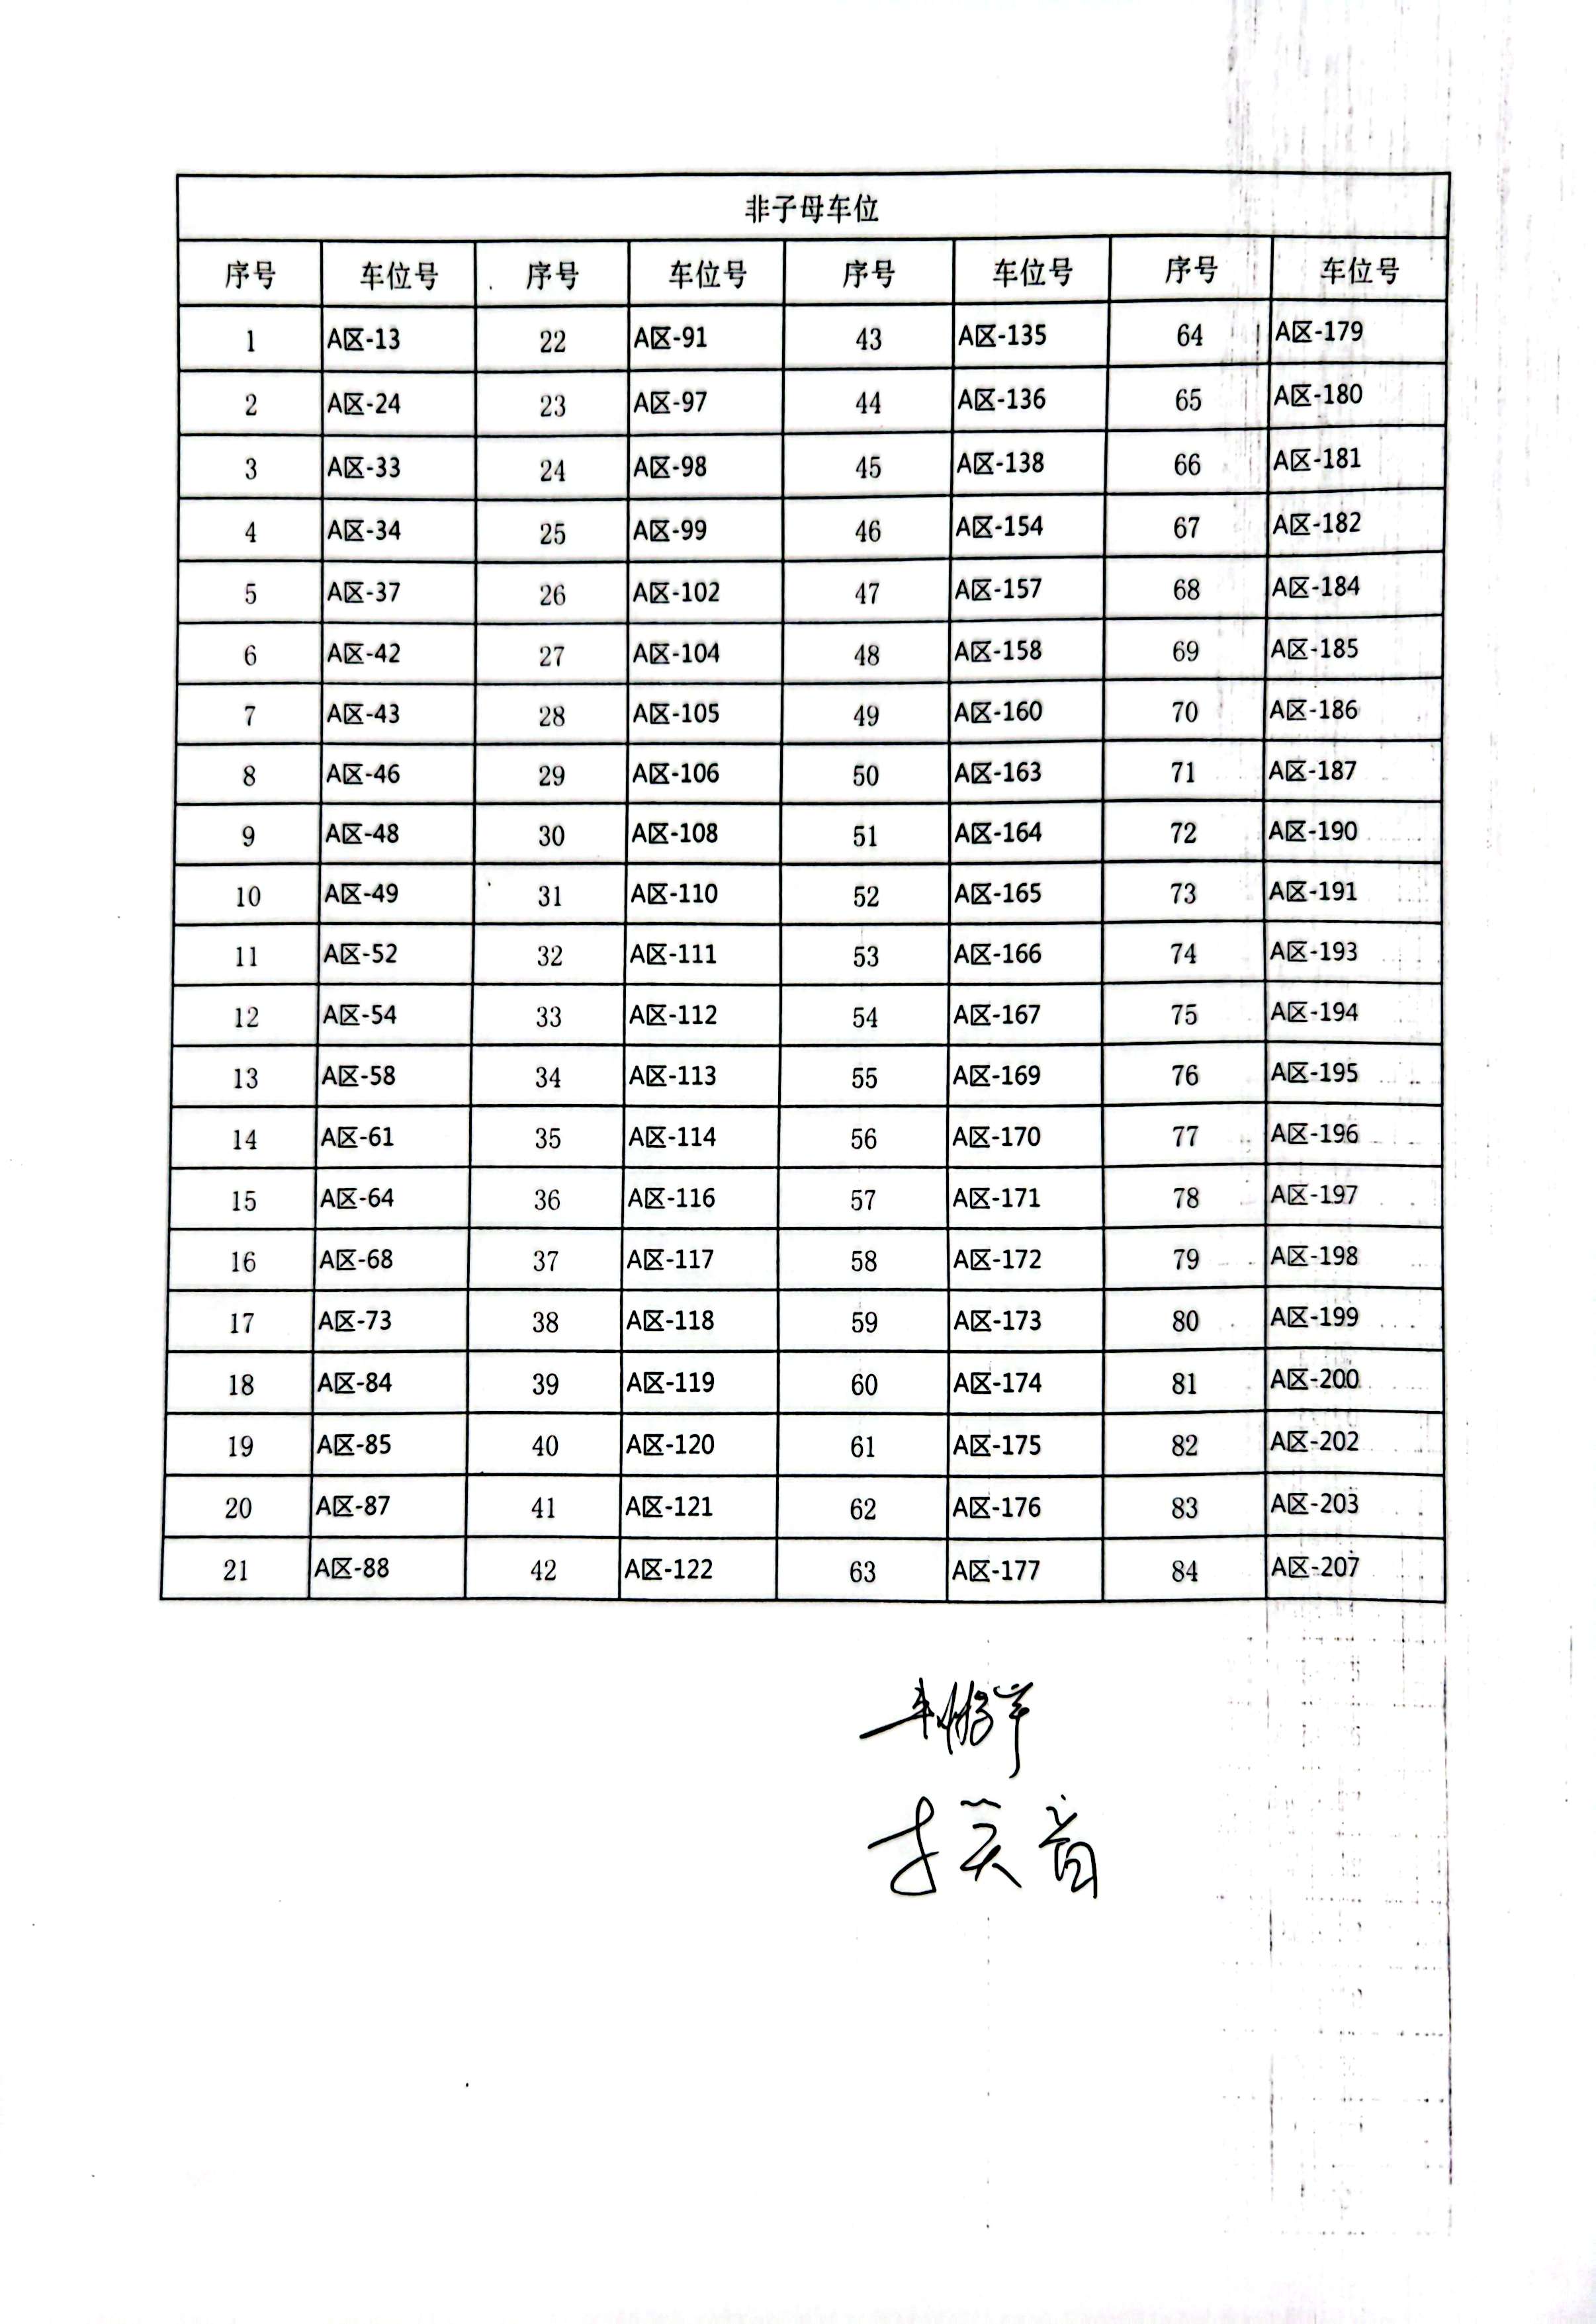 非子母车位
序号 车位号 序号 车位号 序号 车位号 序号 车位号
1 A区-13 22 A区-91 43 A区-135 64 A区-179
2 A区-24 23 A区-97 44 A区-136 65 A区-180
3 A区-33 24 A区-98 45 A区-138 66 A区-181
4 A区-34 25 A区-99 46 A区-154 67 A区-182
5 A区-37 26 A区-102 47 A区-157 68 A区-184
6 A区-42 27 A区-104 48 A区-158 69 A区-185
7 A区-43 28 A区-105 49 A区-160 70 A区-186
8 A区-46 29 A区-106 50 A区-163 71 A区-187
9 A区-48 30 A区-108 51 A区-164 72 A区-190
10 A区-49 31 A区-110 52 A区-165 73 A区-191
11 A区-52 32 A区-111 53 A区-166 74 A区-193
12 A区-54 33 A区-112 54 A区-167 75 A区-194
13 A区-58 34 A区-113 55 A区-169 76 A区-195
14 A区-61 35 A区-114 56 A区-170 77 A区-196
15 A区-64 36 A区-116 57 A区-171 78 A区-197
16 A区-68 37 A区-117 58 A区-172 79 A区-198
17 A区-73 38 A区-118 59 A区-173 80 A区-199
18 A区-84 39 A区-119 60 A区-174 81 A区-200
19 A区-85 40 A区-120 61 A区-175 82 A区-202
20 A区-87 41 A区-121 62 A区-176 83 A区-203
21 A区-88 42 A区-122 63 A区-177 84 A区-207